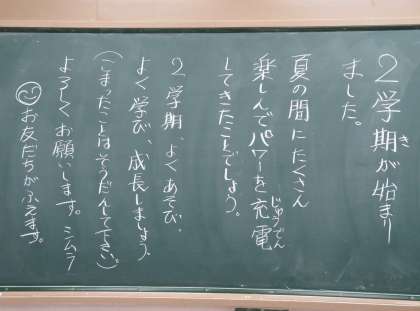 2学期が始まり
ました。
夏の間にたくさん
楽しんでパワーを充電
してきたことでしょう。
2学期、よくあそび、
よく学び、成長しましょう。
(こまったことはそうだんして下さい。)
よろしくお願いします。シムラ
お友だちがふえます。